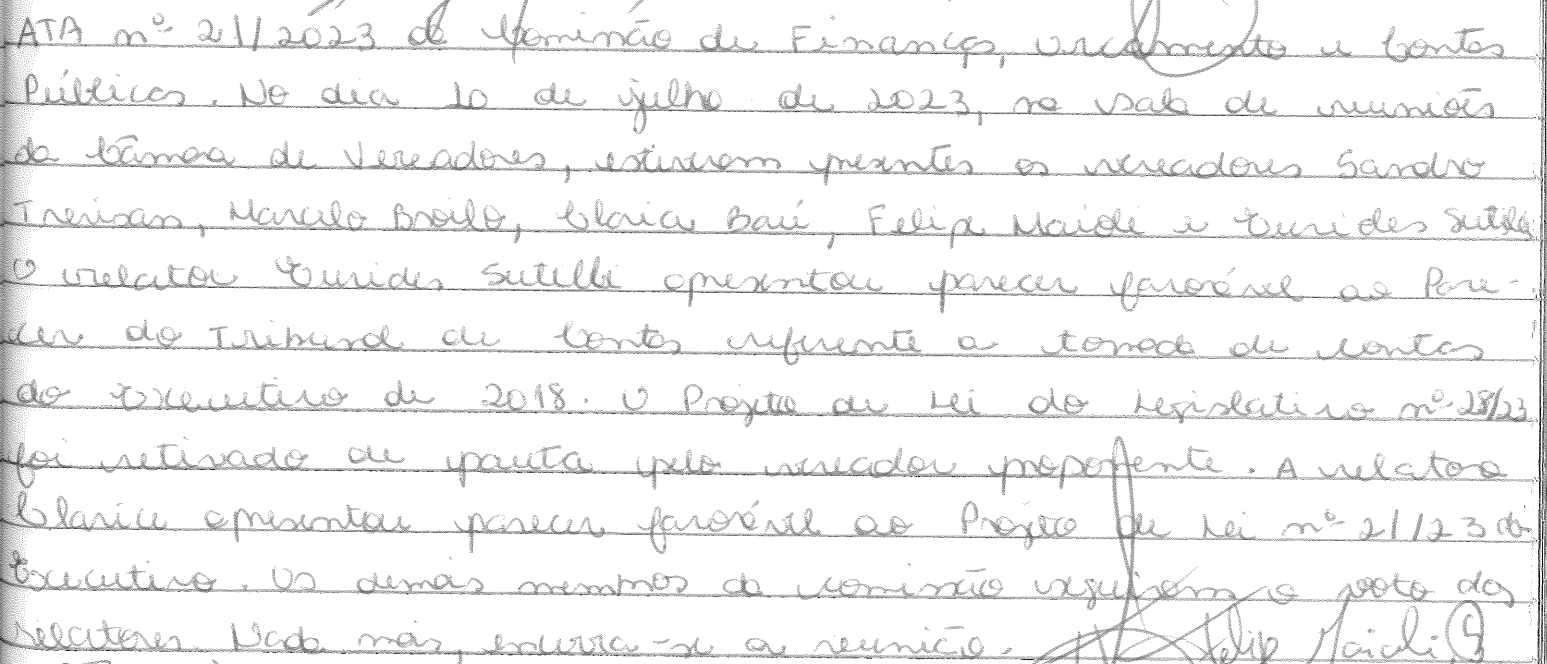 ATA nº 21/2023 da Comissão de Finanças, orçamento e Contas
Públicas. No dia 10 de julho de 2023, na sala de reuniões
da Câmara de Vereadores, estiveram presentes os vereadores Sandro
Trevisan, Marcelo Broilo, Clarice Baú, Felipe Maioli e Eurides Sutilli.
O relator Eurides Sutilli apresentou parecer favorável ao Pare-
cer do Tribunal de Contas referente a tomada de contas
do Executivo de 2018. O Projeto de Lei do Legislativo nº 28/23
foi retirado de pauta pelo vereador proponente. A relatora
Clarice apresentou parecer favorável ao Projeto de Lei nº 21/23 do
Executivo. Os demais membros da comissão seguiram o voto dos
relatores. Nada mais, encerra-se a reunião. Felipe Maioli